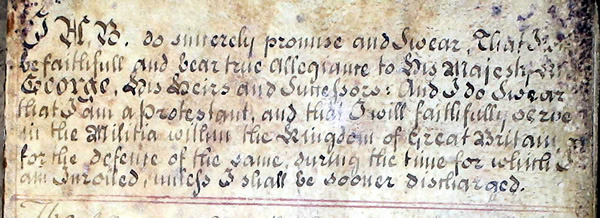 I A, B. do sincerely promise and Swear, That I
be faithfull and bear true Allegiance to His Majesty
George, His Heirs and Successors: And I do Swear
that I am a Protestant, and that I will faithfully serve
in the Militia within the Kingdom of Great Britain,
for the defence of the same, during the time for which I
am Inrolled, unless I shall be sooner discharged.